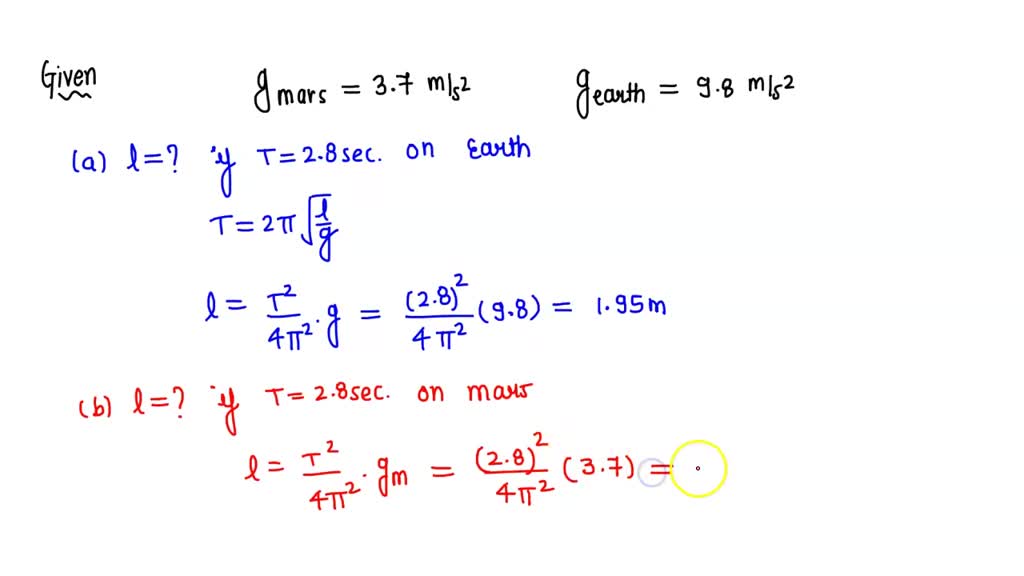 Given g mars = 3.7 m/s² g earth = 9.8 m/s²
(a) l = ? if T = 2.8 sec. on Earth
T = 2π √(l/g)
l = T²/4π² · g = (2.8)²/4π² (9.8) = 1.95m
(b) l = ? if T = 2.8 sec. on mars
l = T²/4π² · gm = (2.8)²/4π² (3.7) =